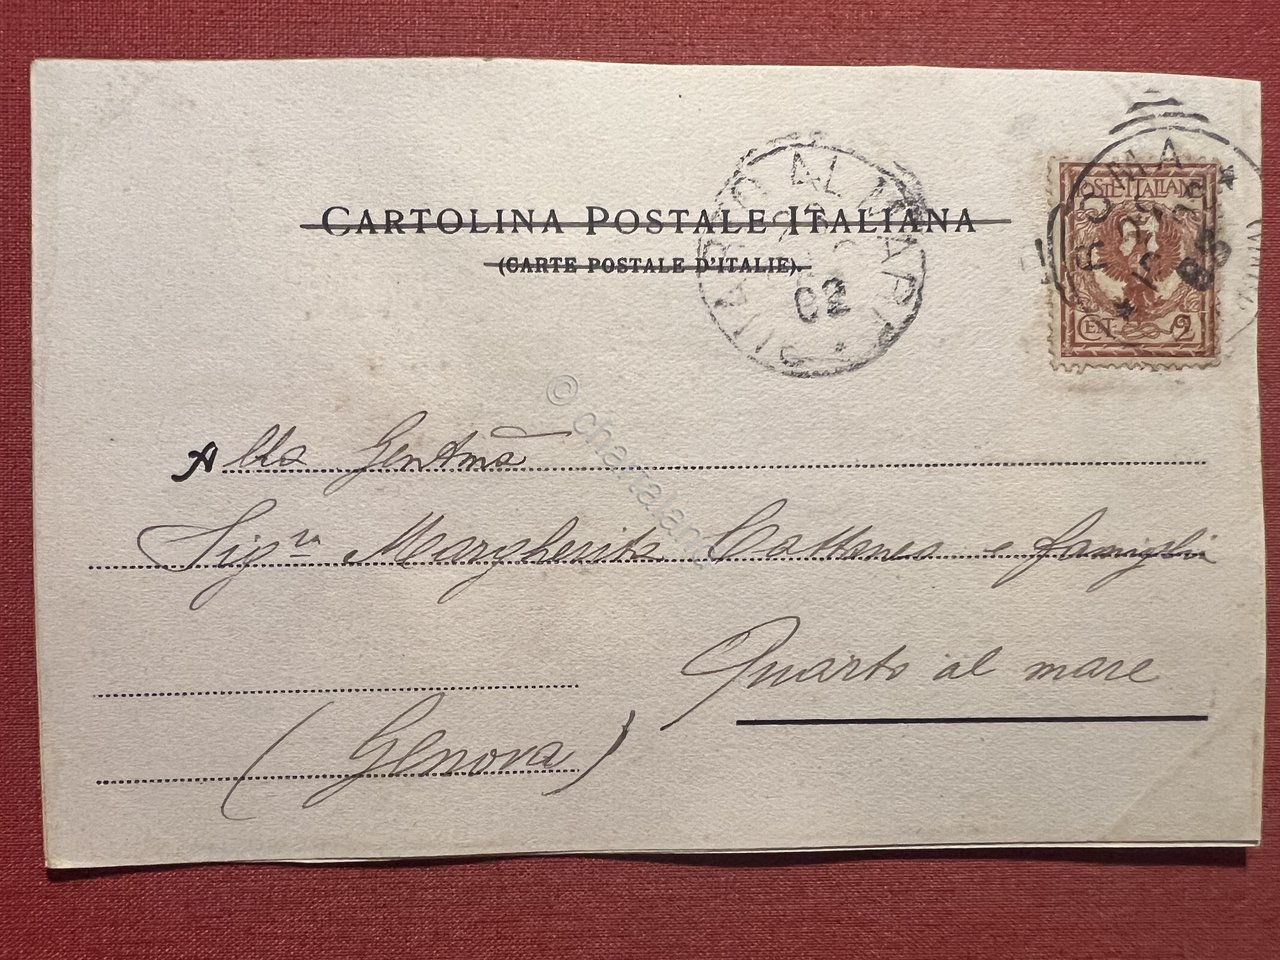 CARTOLINA POSTALE ITALIANA
(CARTE POSTALE D'ITALIE).
QUARTO AL MARE
02
ROMA
POSTE ITALIANE
CENT 2
Alla Gentma
Sigra Margherita Cattaneo e famiglia
Quarto al mare
(Genova)
© chartaland